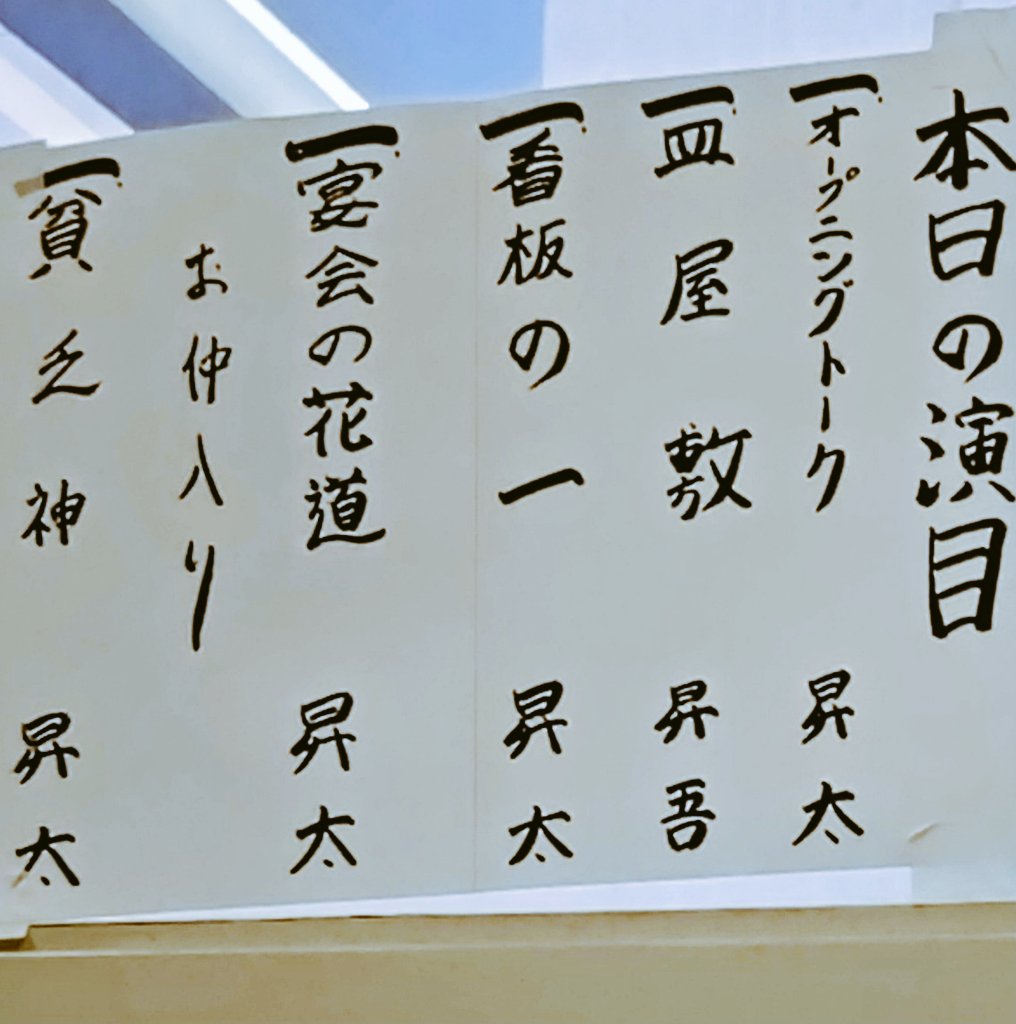 本日の演目
一 オープニングトーク 昇太
一 皿屋敷 昇吾
一 看板の一 昇太
一 宴会の花道 昇太
お仲入り
一 貧乏神 昇太